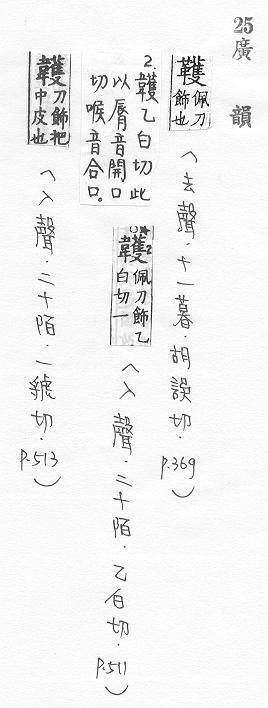 25廣韻
韄 佩刀飾也
(去聲.十一暮.胡誤切.p.369)
2.韄乙白切此以脣音開口切喉音合口。
韄2 佩刀飾乙白切一
(入聲.二十陌.乙白切.p.511)
韄 刀飾把中皮也
(入聲.二十陌.一虢切.p.513)